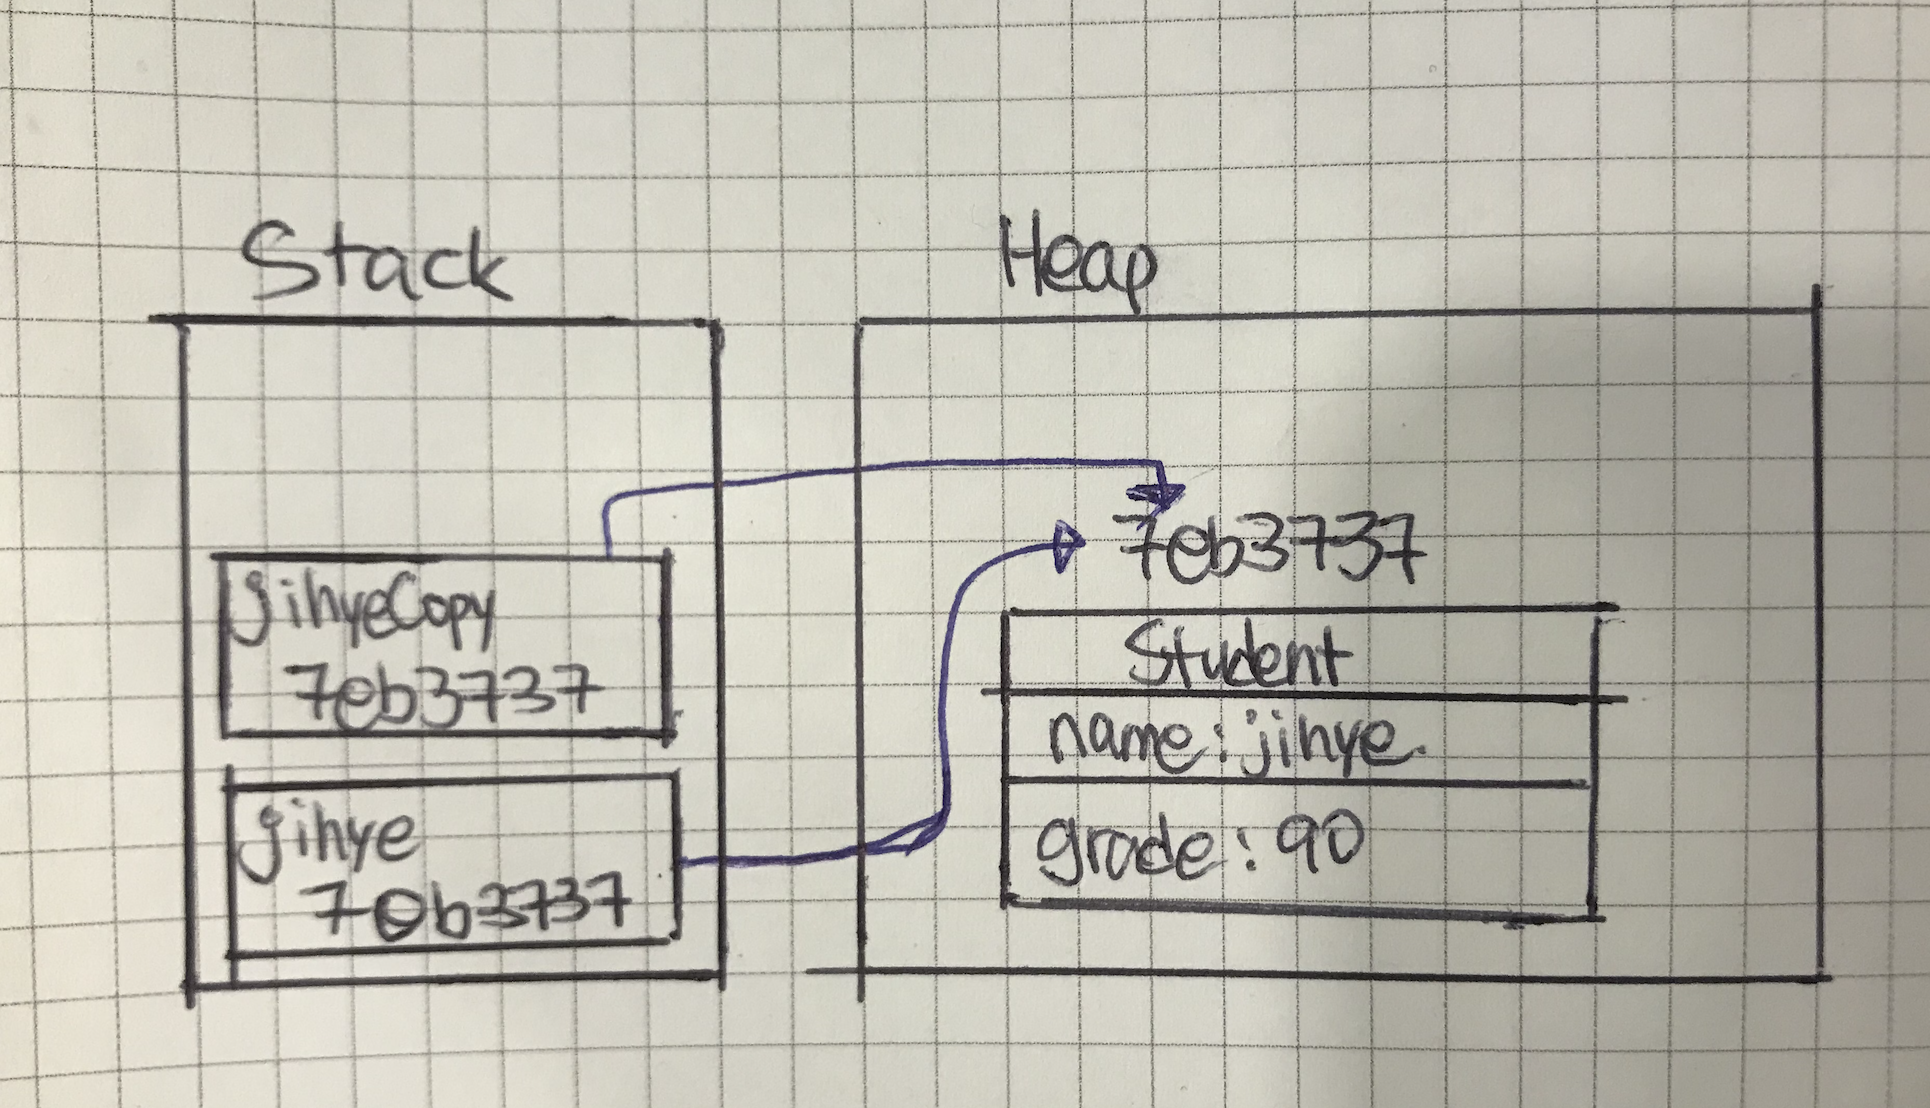 Stack
jihyeCopy
7eb3737
jihye
7eb3737
Heap
7eb3737
Student
name: jihye.
grade: 90